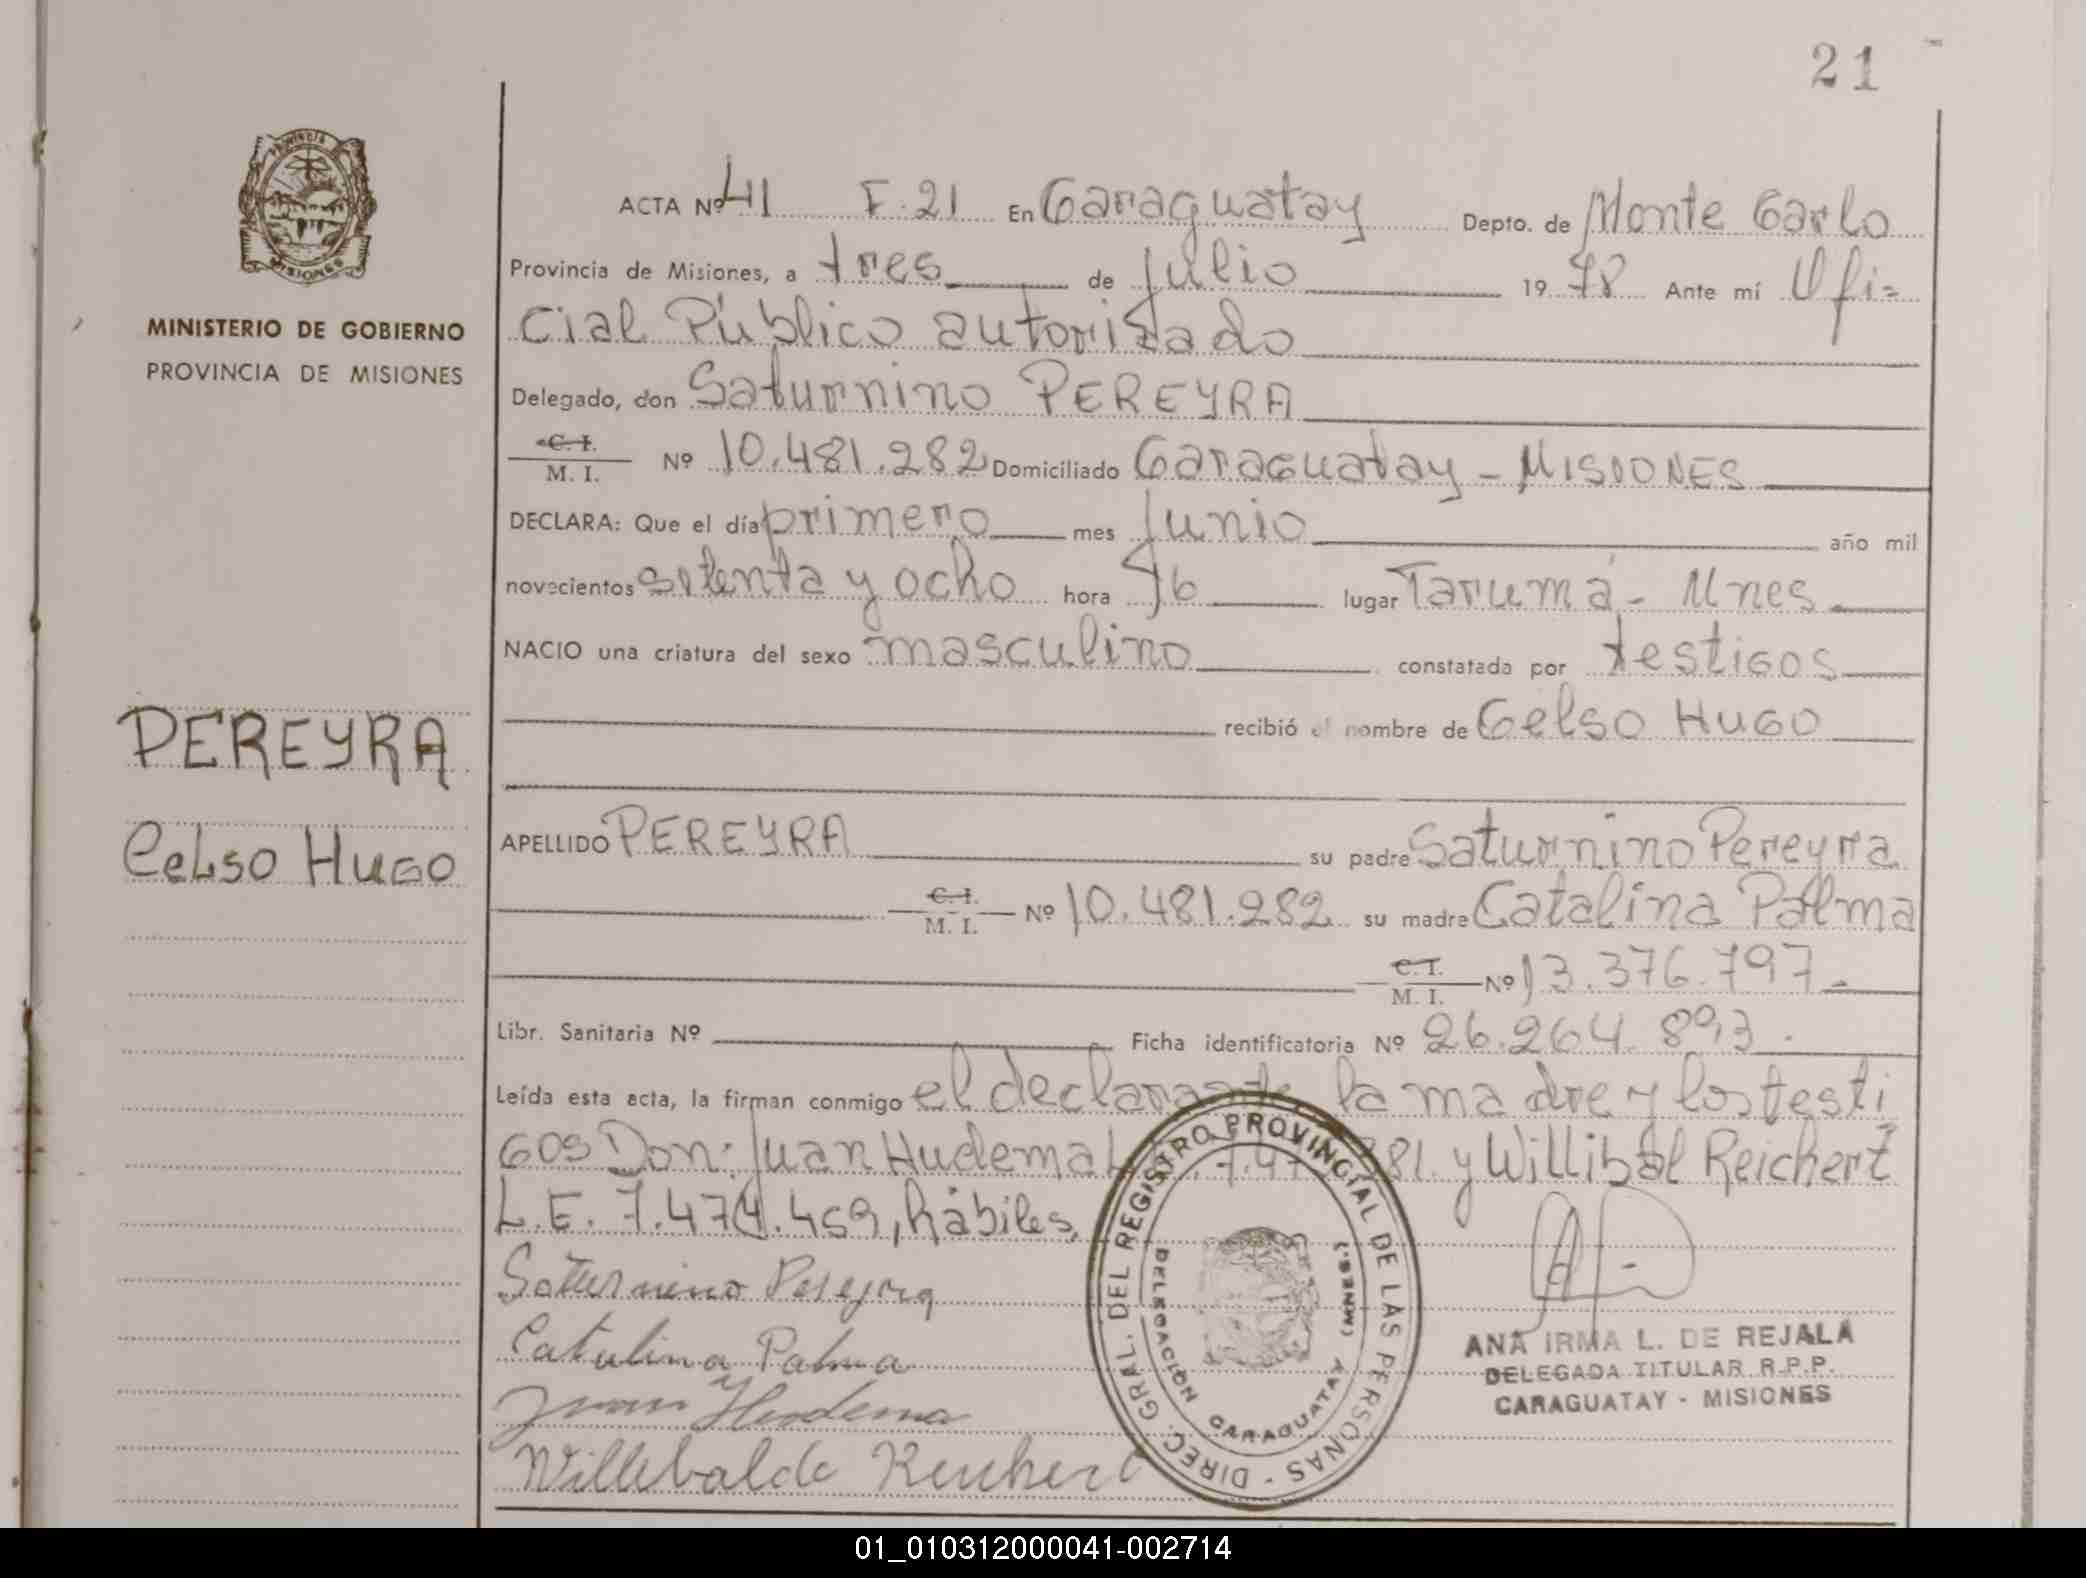 21
PROVINCIA
MISIONES
MINISTERIO DE GOBIERNO
PROVINCIA DE MISIONES
PEREYRA
Celso Hugo
ACTA Nº 41 F. 21 En Caraguatay Depto. de Monte Carlo
Provincia de Misiones, a tres de julio 19 78 Ante mí Ofi=
cial Público autorizado
Delegado, don Saturnino PEREYRA
C. I.
M. I. Nº 10.481.282 Domiciliado Caraguatay - MISIONES
DECLARA: Que el día primero mes Junio año mil
novecientos setenta y ocho hora 16 lugar Tarumá - Mnes
NACIO una criatura del sexo masculino constatada por testigos
recibió el nombre de Celso Hugo
APELLIDO PEREYRA su padre Saturnino Pereyra
C. I.
M. I. Nº 10.481.282 su madre Catalina Palma
C. I.
M. I. Nº 13.376.797.-
Libr. Sanitaria Nº Ficha identificatoria Nº 26.264.893.
Leída esta acta, la firman conmigo el declarante, la madre y los testi
gos Don: Juan Hudema 81. y Willibal Reichert
L.E. 7.474.459, hábiles,
Saturnino Pereyra
Catalina Palma
Juan Hudema
Willebaldo Reichert
DIREC. GRAL. DEL REGISTRO PROVINCIAL DE LAS PERSONAS -
DELEGACION CARAGUATAY (MNES.)
ANA IRMA L. DE REJALA
DELEGADA TITULAR R.P.P.
CARAGUATAY - MISIONES
01_010312000041-002714